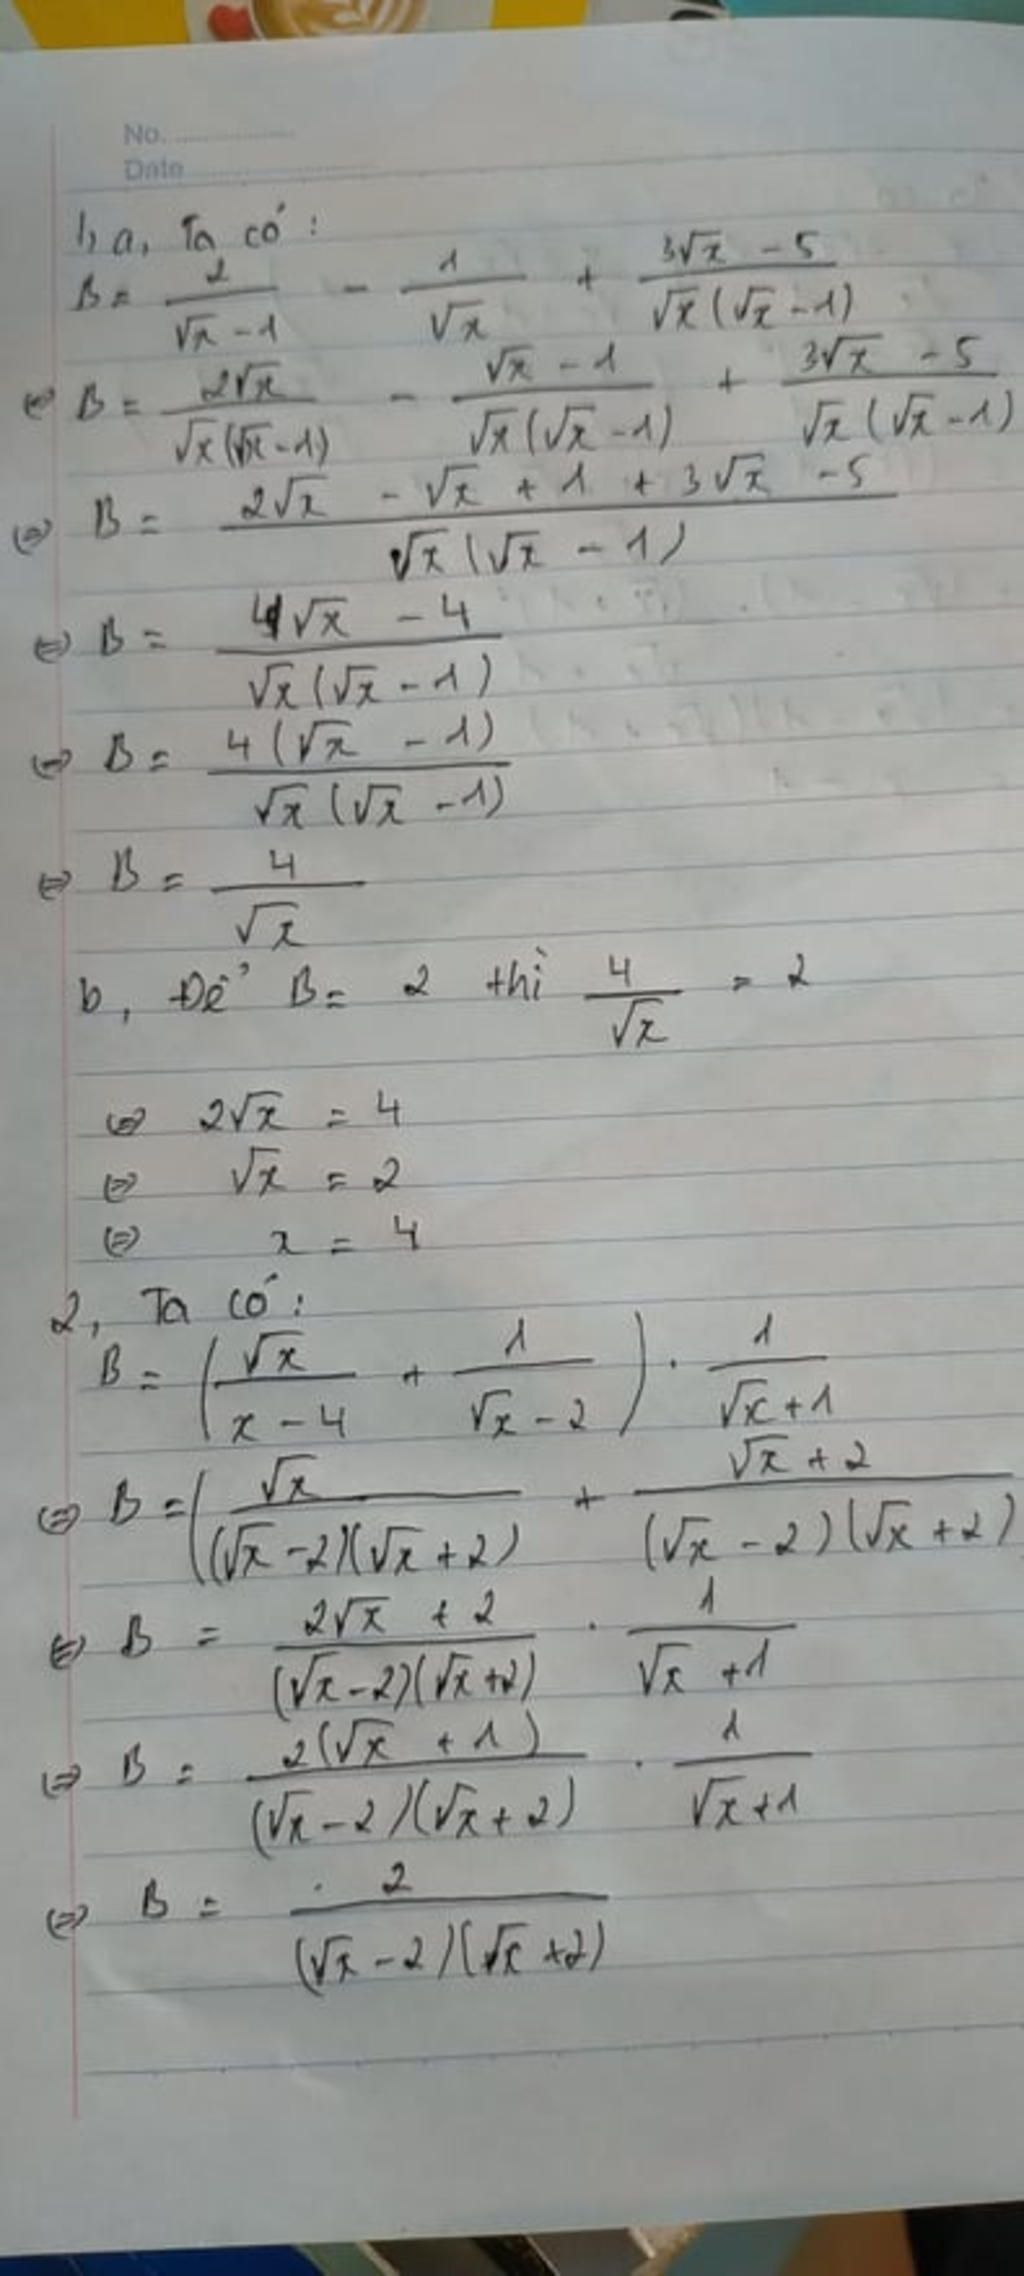 No. ...............
Date ...............
1, a, Ta có :
B = 2/(√x - 1) - 1/√x + (3√x - 5)/(√x(√x - 1))
(=) B = 2√x/(√x(√x - 1)) - (√x - 1)/(√x(√x - 1)) + (3√x - 5)/(√x(√x - 1))
(=) B = (2√x - √x + 1 + 3√x - 5)/(√x(√x - 1))
(=) B = (4√x - 4)/(√x(√x - 1))
(=) B = 4(√x - 1)/(√x(√x - 1))
(=) B = 4/√x
b, Để B = 2 thì 4/√x = 2
(=) 2√x = 4
(=) √x = 2
(=) x = 4
2, Ta có :
B = (√x/(x - 4) + 1/(√x - 2)) . 1/(√x + 1)
(=) B = (√x/((√x - 2)(√x + 2)) + (√x + 2)/((√x - 2)(√x + 2))
(=) B = (2√x + 2)/((√x - 2)(√x + 2)) . 1/(√x + 1)
(=) B = 2(√x + 1)/((√x - 2)(√x + 2)) . 1/(√x + 1)
(=) B = 2/((√x - 2)(√x + 2))